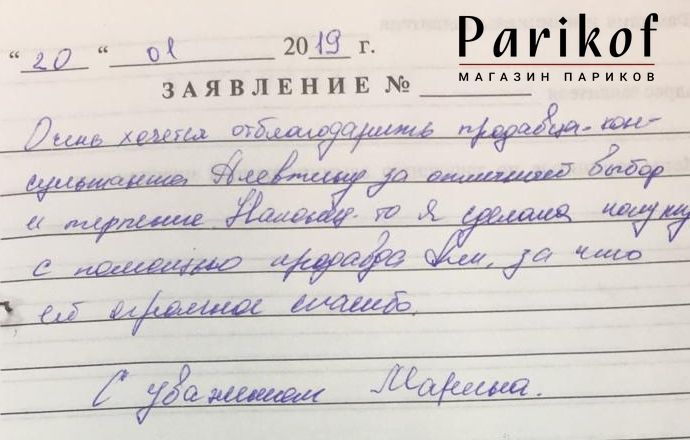 Parikof
МАГАЗИН ПАРИКОВ
“ 20 “ 01 2019 г.
ЗАЯВЛЕНИЕ №
Очень хочется отблагодарить продавца-кон-
сультанта Алевтину за отличный выбор
и терпение. Наконец-то я сделала покупку
с помощью продавца Али, за что
ей огромное спасибо.
С уважением Марина.